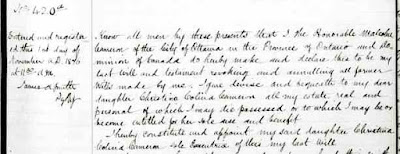 No 420th
Entered and registered
this 1st day of
November A.D. 1876
at
James
Know all men by these presents that I the Honorable Malcolm
Cameron of the City of Ottawa in the Province of Ontario and Do-
minion of Canada do hereby make and declare this to be my
last will and testament revoking and annulling all former
wills made by me. I give devise and bequeath to my dear
daughter Christina Colina Cameron all my estate real and
personal of which I may die possessed or to which I may be or
become entitled for her sole use and benefit
I hereby constitute and appoint my said daughter Christina
Colina Cameron sole Executrix of this my last Will